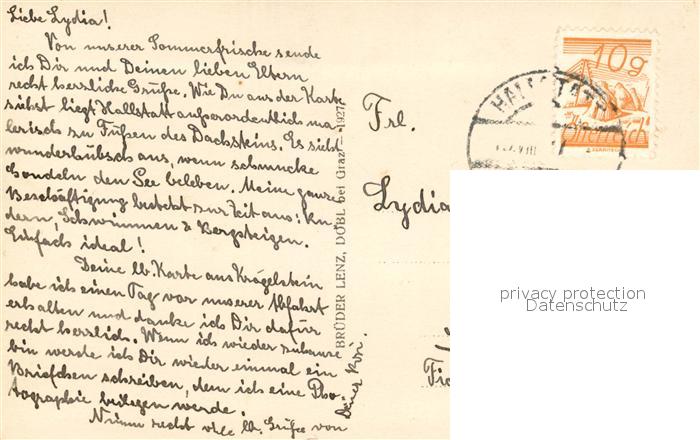 Liebe Lydia!
Von unserer Sommerfrische sende
ich Dir und Deinen lieben Eltern
recht herrliche Grüße. Wie Du aus der Karte
siehst liegt Hallstatt außerordentlich ma-
lerisch zu Füßen des Dachsteins. Es sieht
wunderhübsch aus, wenn schmucke
Gondeln den See beleben. Meine ganze
Beschäftigung besteht zur Zeit aus: Ru-
dern, Schwimmen & Bergsteigen.
Einfach ideal!
Deine lb. Karte aus Krögelstein
habe ich einen Tag vor unserer Abfahrt
erhalten und danke ich Dir dafür
recht herrlich. Wenn ich wieder zuhause
bin werde ich Dir wieder einmal ein
Briefchen schreiben, dem ich eine Pho-
tographie beilegen werde.
Nimm recht viele lb. Grüße von
Deiner Rosi.
BRÜDER LENZ, DOBL bei Graz — 1927
Frl.
Lydia
10g
Österreich
HALLSTATT
VIII
privacy protection
Datenschutz